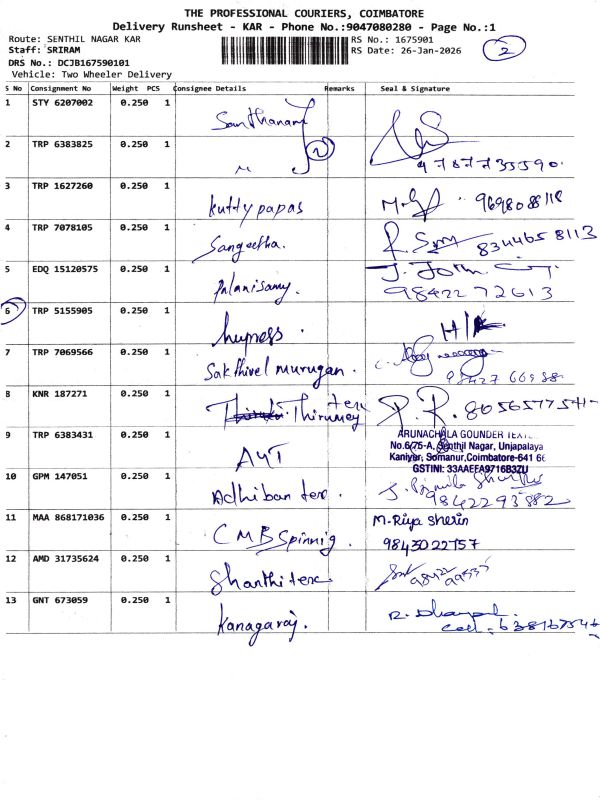 THE PROFESSIONAL COURIERS, COIMBATORE
Delivery Runsheet - KAR - Phone No.:9047080280 - Page No.:1
Route: SENTHIL NAGAR KAR
RS No.: 1675901
Staff: SRIRAM
RS Date: 26-Jan-2026
2
DRS No.: DCJB167590101
Vehicle: Two Wheeler Delivery
S No Consignment No Weight PCS Consignee Details Remarks Seal & Signature
1 STY 6207002 0.250 1 Santhanam
2 TRP 6383825 0.250 1 " 2 9787735590.
3 TRP 1627260 0.250 1 Kuttypapas 9698088118
4 TRP 7078105 0.250 1 Sangeetha. 8344658113
5 EDQ 15120575 0.250 1 Palanisamy. J. John
9842272613
6 TRP 5155905 0.250 1 H/R
7 TRP 7069566 0.250 1 Sakthivel murugan.
8 KNR 187271 0.250 1 Thirumey tex P. R. 8056577541-
9 TRP 6383431 0.250 1 AYT
ARUNACHALA GOUNDER TEXTI
No.6/75-A, Senthil Nagar, Unjapalaya
Kaniyur, Somanur, Coimbatore-641 66
GSTINI: 33AAEFA9716B3ZU
10 GPM 147051 0.250 1 Adhiban tex. 9842293882
11 MAA 868171036 0.250 1 CMB Spinnig. M-Riya Sherin
9843022757
12 AMD 31735624 0.250 1 Shanthi tex
13 GNT 673059 0.250 1 Kanagaraj. R. Dhanapal.
Cell: 638167546